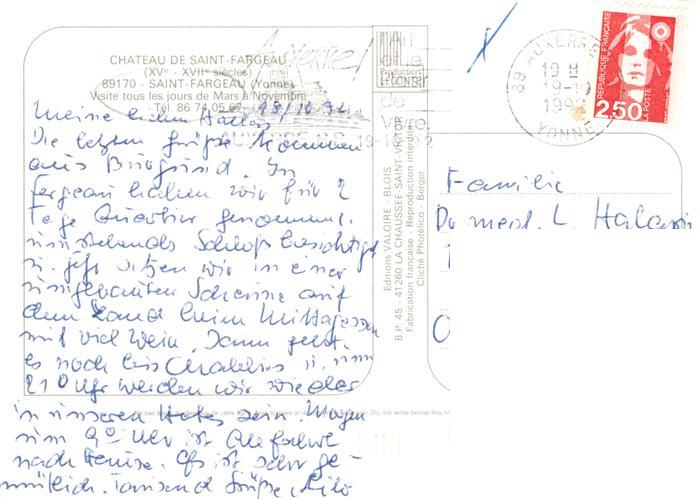 CHATEAU DE SAINT-FARGEAU
(XVe - XVIIe siècles)
89170 - SAINT-FARGEAU (Yonne)
Visite tous les jours de Mars à Novembre
Tél. 86 74 05 67
18/10 92
Meine lieben
Die letzten Grüße kommen
aus Burgund. In
Fergeau haben wir für 2
Tage Quartier genommen,
umstehendes Schloß besichtigt
u. jetzt sitzen wir in einer
umgebauten Scheune auf
dem Land beim Mittagessen
mit viel Wein. Dann geht
es noch bis Chablis u. um
210 Uhr werden wir wieder
in unserem Hotel sein. Morgen
um 9°° Uhr ist Abfahrt
nach Hause. Es ist sehr ge-
mütlich. Tausend Grüße, Lilo
Auxerre
Production
LECONTE
de
Vivre
19-10
Editions VALOIRE - BLOIS
B.P. 45 - 41260 LA CHAUSSEE-SAINT-VICTOR
Fabrication française - Reproduction interdite
Cliché Photélico - Berger
Do not write below this
89 AUXERRE
19 H
19-10
1992
YONNE
REPUBLIQUE FRANÇAISE
2,50
LA POSTE
Familie
Dr med. L.